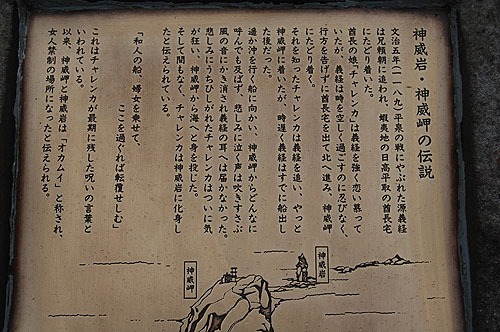 神威岩・神威岬の伝説
文治五年(一一八九)平泉の戦にやぶれた源義経
は兄頼朝に追われ、蝦夷地の日高平取の酋長宅
にたどり着いた。
酋長の娘、「チャレンカ」は義経を強く恋い慕って
いたが、義経は時を空しく過ごすのに忍びなく、
行方を告げずに酋長宅を出て北へ進み、神威岬
にたどり着く。
それを知ったチャレンカは義経を追い、やっと
神威岬に着いたが、時遅く義経はすでに船出し
た後だった。
遥か沖を行く船に向かい、神威岬からどんなに
呼んでも及ばず、悲しみに泣く声は吹きすさぶ
風の音にかき消され義経の耳へは届かなかった。
悲しみにうちひしがれたチャレンカはついに気
が狂い、神威岬から海へと身を投じた。
そして間もなく、チャレンカは神威岩に化身し
たと伝えられている。
「和人の船、婦女を乗せて、
ここを過ぐれば転覆せしむ」
これはチャレンカが最期に残した呪いの言葉と
いわれている。
以来、神威岬と神威岩は「オカムイ」と称され、
女人禁制の場所になったと伝えられる。
神威岩
神威岬